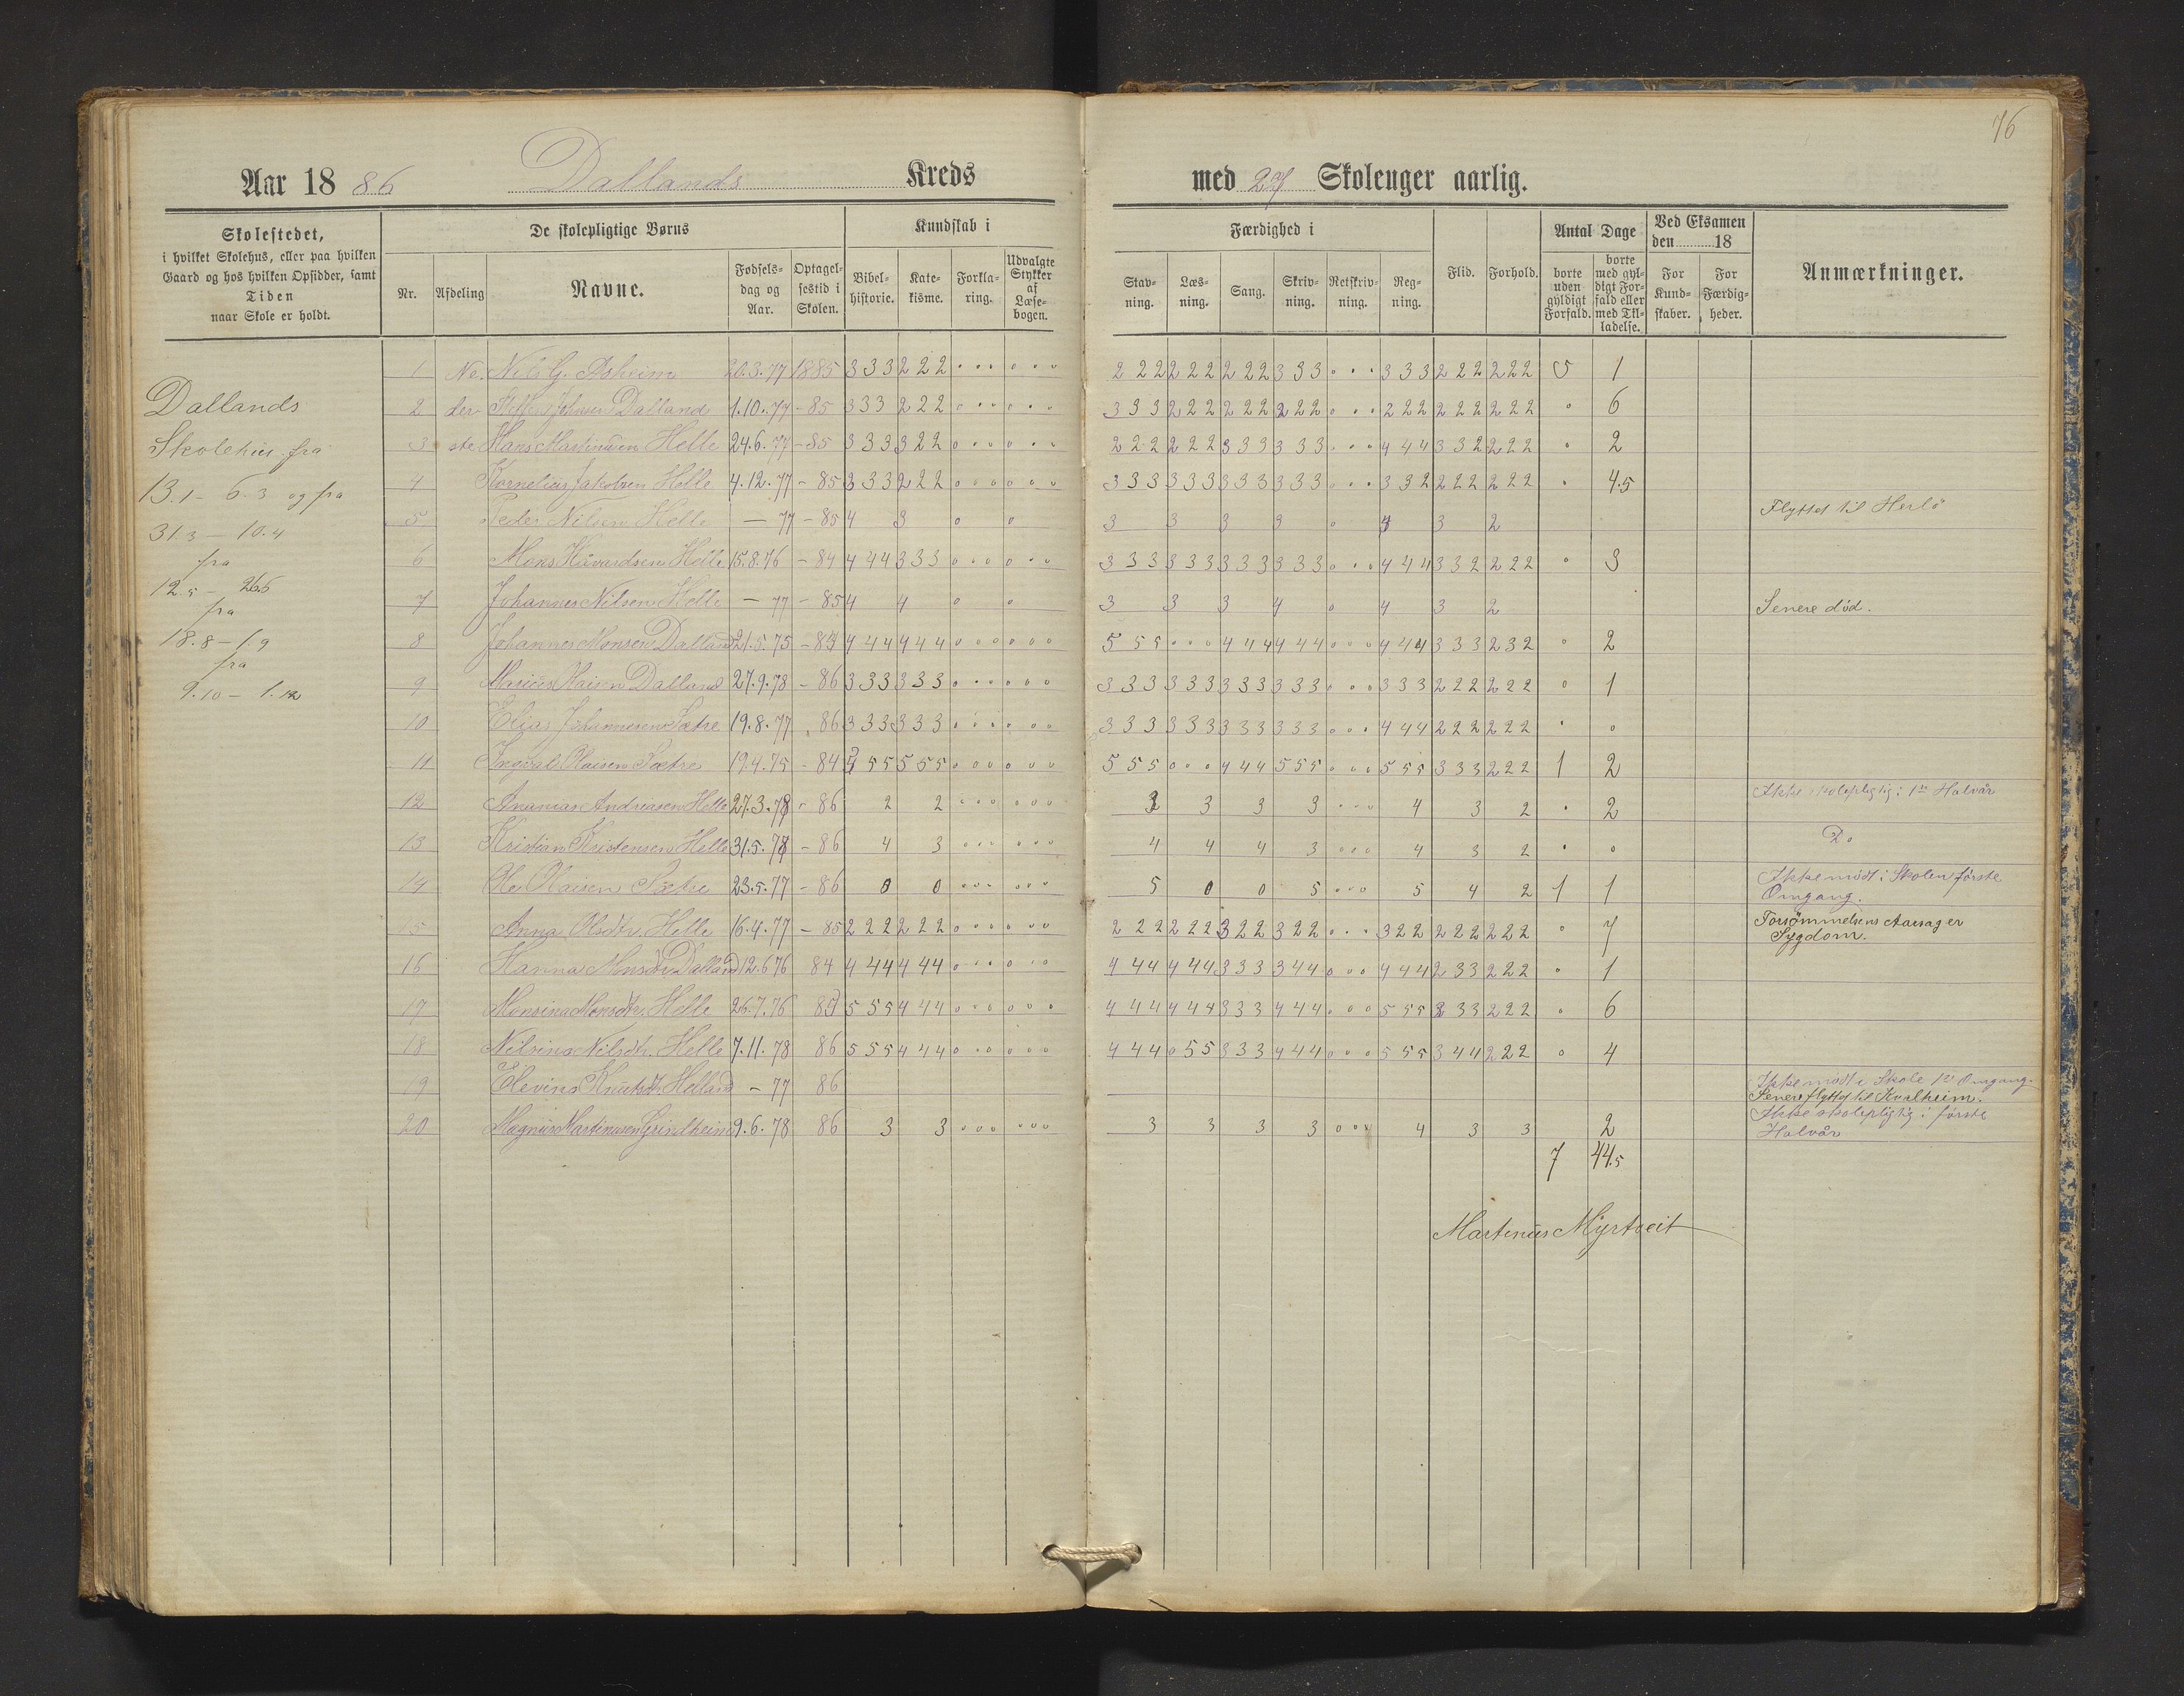 76
Aar 1886 Dallands Kreds
med 27 Skoleuger aarlig.
Skolestedet,
i hvilket Skolehus, eller paa hvilken
Gaard og hos hvilken Opsidder, samt
Tiden
naar Skole er holdt.
De skolepligtige Børns
Nr. Afdeling Navne. Fødselsdag og Aar. Optagelsestid i Skolen.
Kundskab i
Bibelhistorie. Katekisme. Forklaring. Udvalgte Stykker af Læsebogen.
Færdighed i
Stavning. Læsning. Sang. Skrivning. Retskrivning. Regning. Flid. Forhold.
Antal Dage
borte uden gyldigt Forfald. borte med gyldigt Forfald eller med Tilladelse.
Ved Eksamen den 18
For Kundskaber. For Færdigheder.
Anmærkninger.
Dallands
Skolehus fra
13.1 - 6.3 og fra
31.3 - 10.4
fra
12.5 - 26.5
fra
18.8 - 1.9
fra
9.10 - 1.12
1 Ne. Nils G. Asheim 20.3.77 1885 333 222 ∘∘∘ ∘∘∘ 222 222 222 333 ∘∘∘ 333 222 222 5 1
2 der Johnsen Dalland 1.10.77 - 85 333 222 ∘∘∘ ∘∘∘ 333 222 222 222 ∘∘∘ 222 222 222 ∘ 6
3 ste Hans Martinusen Helle 24.6.77 - 85 333 322 ∘∘∘ ∘∘∘ 222 222 333 333 ∘∘∘ 444 332 222 ∘ 2
4 Kornelius Jakobsen Helle 4.12.77 - 85 333 222 ∘∘∘ ∘∘∘ 333 333 333 333 ∘∘∘ 332 222 222 ∘ 4.5
5 Peder Nilsen Helle — 77 - 85 4 3 ∘ ∘ 3 3 3 3 ∘ 4 3 2 Flyttet til Herlö
6 Mons Håvardsen Helle 15.8.76 - 84 444 333 ∘∘∘ ∘∘∘ 333 333 333 333 ∘∘∘ 444 332 222 ∘ 3
7 Johannes Nilsen Helle — 77 - 85 4 4 ∘ ∘ 3 3 3 4 ∘ 4 3 2 Senere död.
8 Johannes Monsen Dalland 21.5.75 - 84 444 444 ∘∘∘ ∘∘∘ 555 ∘∘∘ 444 444 ∘∘∘ 444 333 232 ∘ 2
9 Dalland 27.9.78 - 86 333 333 ∘∘∘ ∘∘∘ 333 333 333 333 ∘∘∘ 333 222 222 ∘ 1
10 Elias Johannesen Sætre 19.8.77 86 333 333 ∘∘∘ ∘∘∘ 333 333 333 333 ∘∘∘ 444 222 222 ∘ ∘
11 Ingval Olaisen Sætre 19.4.75 - 84 555 555 ∘∘∘ ∘∘∘ 555 ∘∘∘ 444 555 ∘∘∘ 555 333 222 1 2
12 Ananias Andreasen Helle 27.3.78 - 86 2 2 ∘∘∘ ∘∘∘ 3 3 3 3 ∘∘∘ 4 3 2 ∘ 2 Ikke skolepligtig i 1ste Halvår
13 Kristian Kristensen Helle 31.5.78 - 86 4 3 ∘∘∘ ∘∘∘ 4 4 4 3 ∘∘∘ 4 3 2 ∘ ∘ Do
14 Ole Olaisen Sætre 23.5.77 - 86 0 0 ∘∘∘ ∘∘∘ 5 0 0 5 ∘∘∘ 5 4 2 1 1 Ikke mödt i Skolen förste
Omgang.
15 Anna Olsdtr. Helle 16.4.77 - 85 222 222 ∘∘∘ ∘∘∘ 222 222 322 322 ∘∘∘ 322 222 222 ∘ 7 Forsömmelsens Aarsag er
Sygdom.
16 Hanna Monsdtr Dalland 12.6.76 84 444 444 ∘∘∘ ∘∘∘ 444 444 333 344 ∘∘∘ 444 233 222 ∘ 1
17 Monsina Monsdtr. Helle 26.7.76 84 555 444 ∘∘∘ ∘∘∘ 444 444 333 444 ∘∘∘ 555 233 222 ∘ 6
18 Nilsina Nilsdtr. Helle 7.11.78 86 555 444 ∘∘∘ ∘∘∘ 444 ∘55 333 444 ∘∘∘ 555 344 222 ∘ 4
19 Elevina Knutsdtr. Helland — 77 86 Ikke mödt i Skole 1ste Omgang.
Senere flyttet til Kvalheim.
20 Magnus Martinusen Grindheim 9.6.78 86 3 3 ∘∘∘ ∘∘∘ 3 3 3 3 ∘∘∘ 4 3 3 2 Ikke skolepligtig i förste
Halvår
7 44.5
Martinus Myrtveit